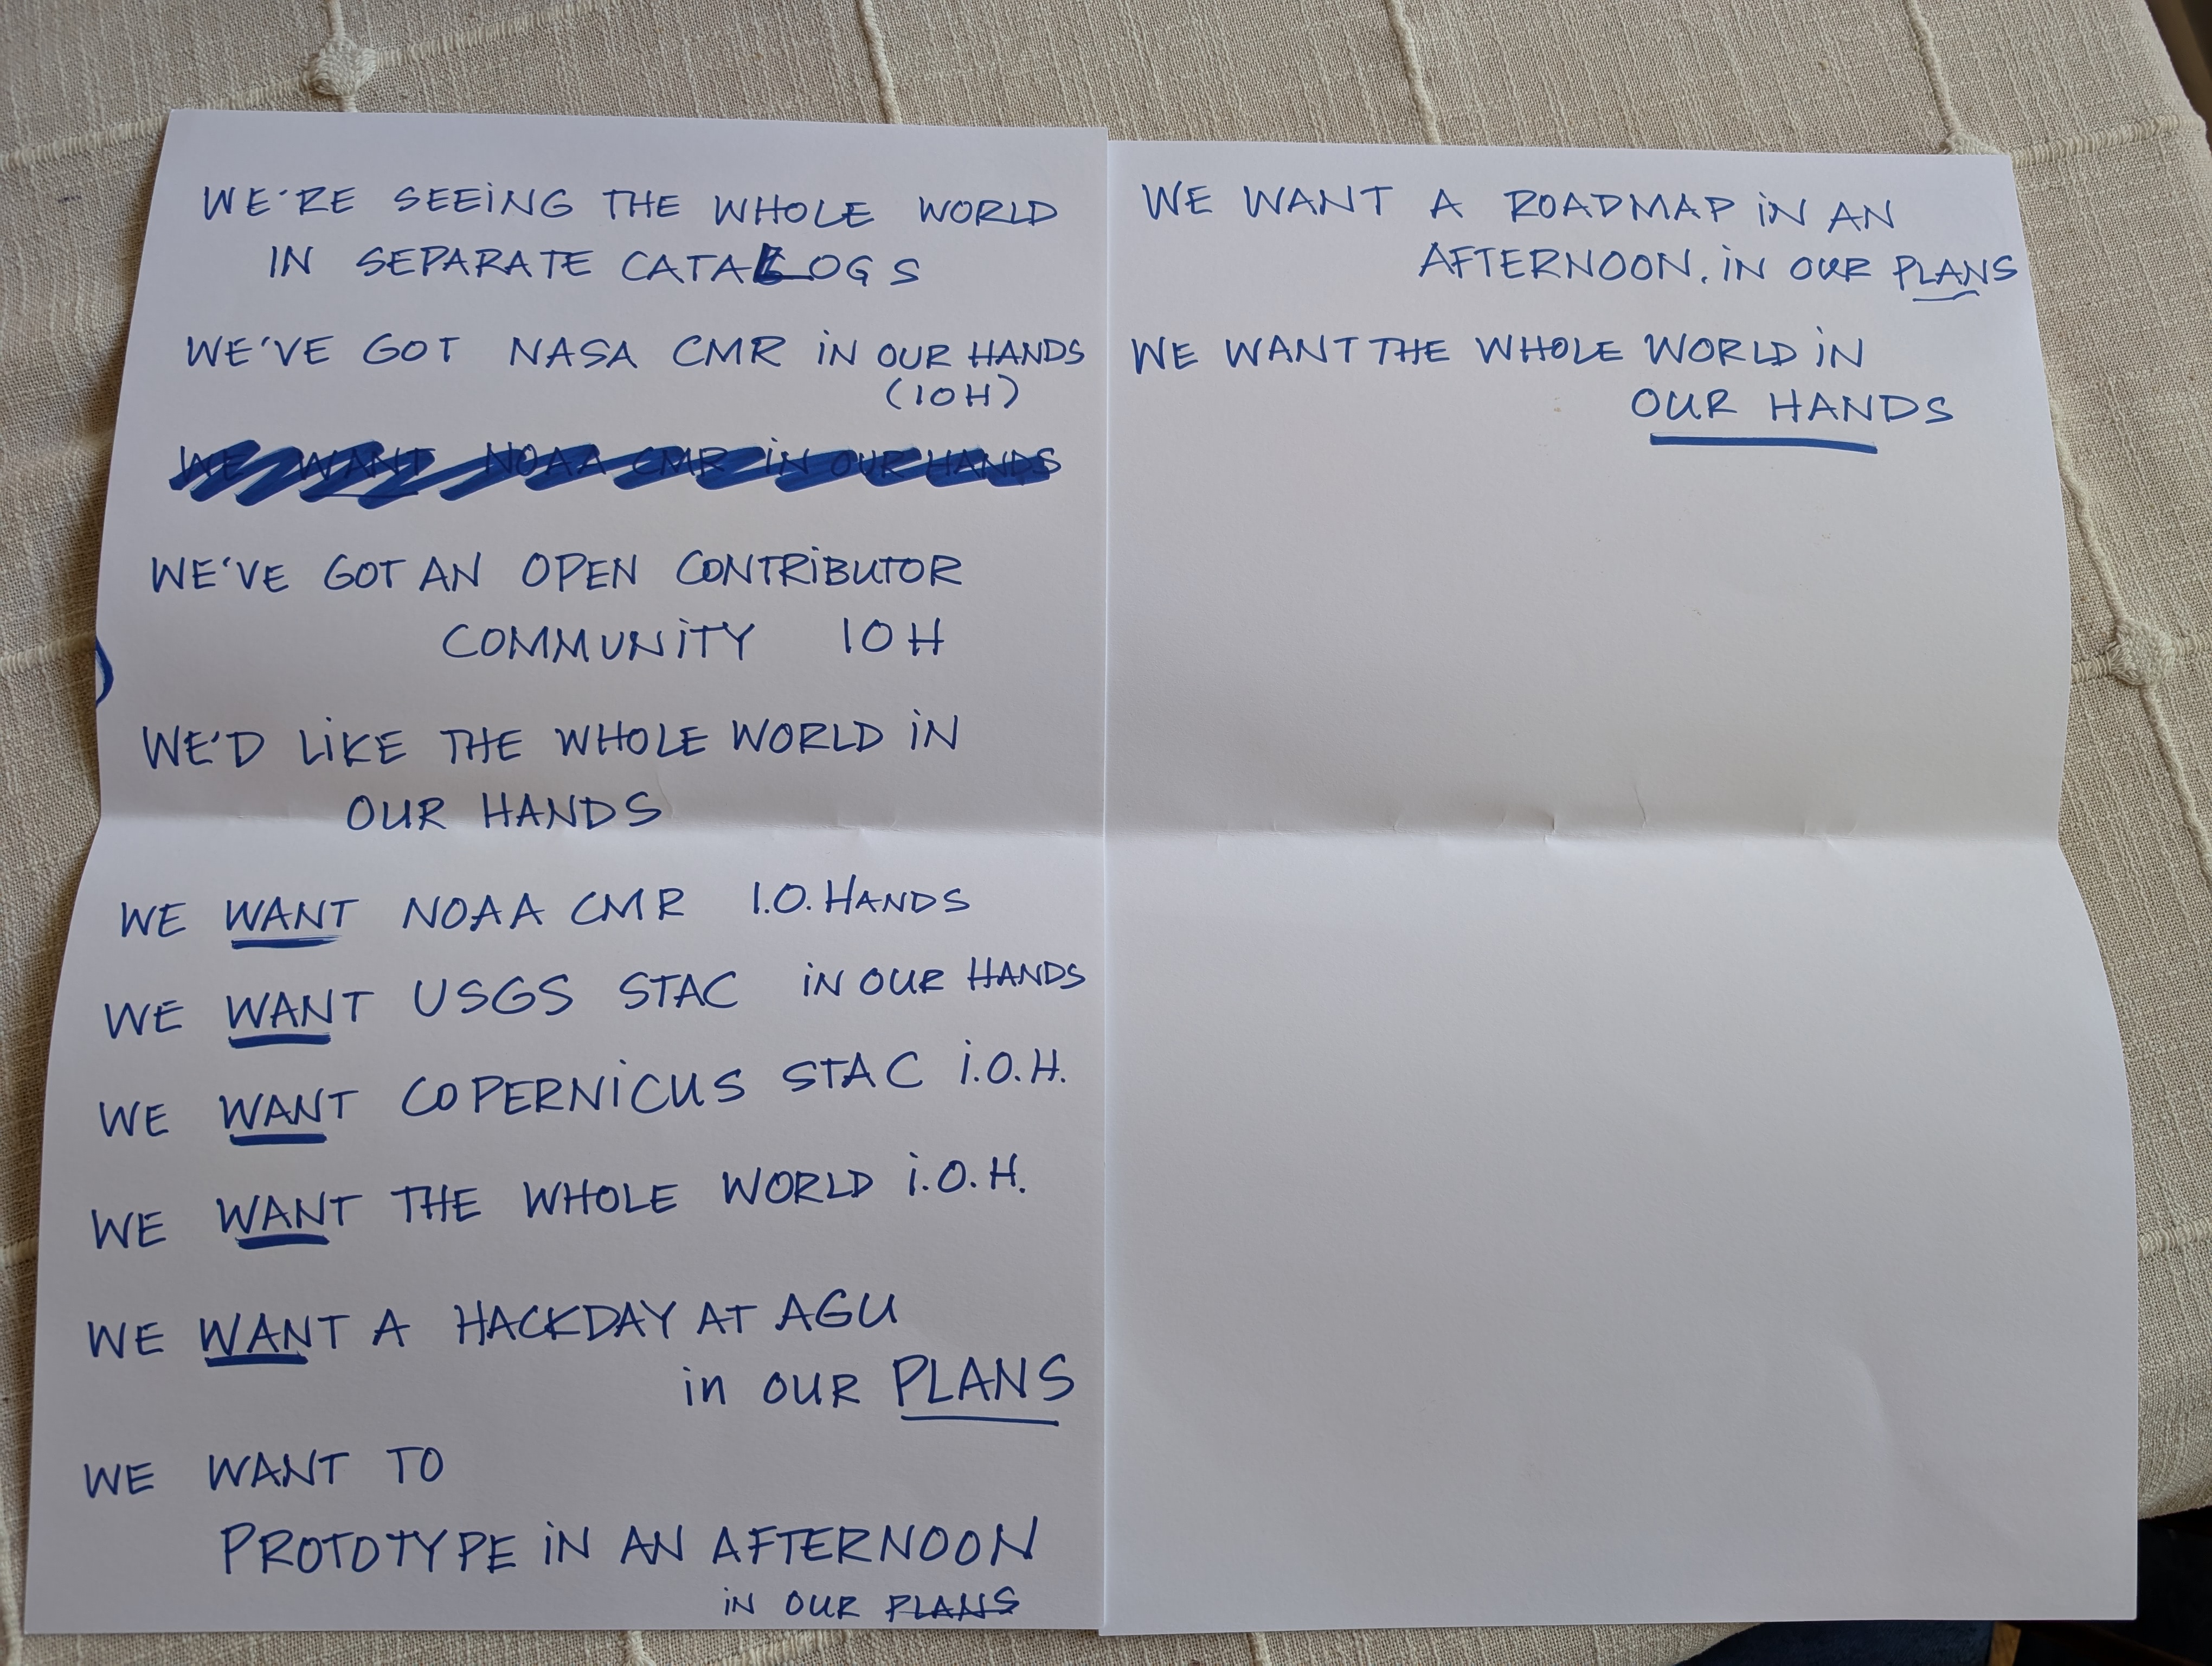 WE'RE SEEING THE WHOLE WORLD
IN SEPARATE CATALOGS
WE'VE GOT NASA CMR IN OUR HANDS
(IOH)
WE WANT NOAA CMR IN OUR HANDS
WE'VE GOT AN OPEN CONTRIBUTOR
COMMUNITY IOH
WE'D LIKE THE WHOLE WORLD IN
OUR HANDS
WE WANT NOAA CMR I.O. HANDS
WE WANT USGS STAC IN OUR HANDS
WE WANT COPERNICUS STAC I.O.H.
WE WANT THE WHOLE WORLD I.O.H.
WE WANT A HACKDAY AT AGU
in OUR PLANS
WE WANT TO
PROTOTYPE IN AN AFTERNOON
IN OUR PLANS
WE WANT A ROADMAP IN AN
AFTERNOON. IN OUR PLANS
WE WANT THE WHOLE WORLD IN
OUR HANDS